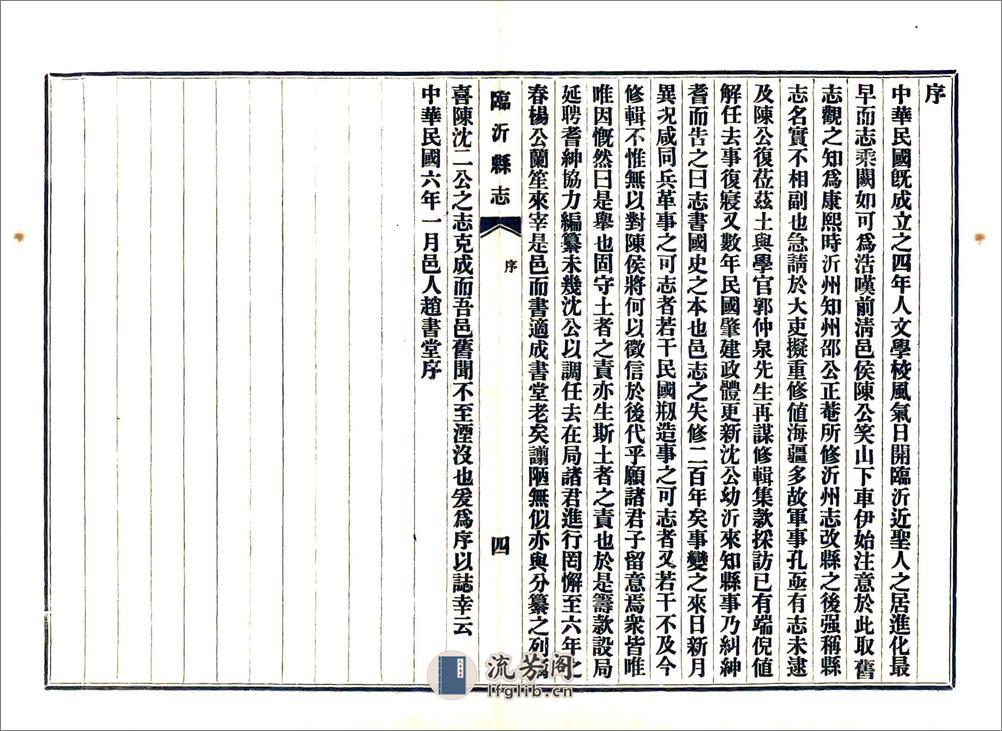 序
中華民國旣成立之四年人文學校風氣日開臨沂近聖人之居進化最
早而志乘闕如可爲浩嘆前淸邑侯陳公笑山下車伊始注意於此取舊
志觀之知爲康熙時沂州知州邵公正菴所修沂州志改縣之後强稱縣
志名實不相副也急請於大吏擬重修値海疆多故軍事孔亟有志未逮
及陳公復莅茲土與學官郭仲泉先生再謀修輯集款採訪已有端倪値
解任去事復寢又數年民國肇建政體更新沈公幼沂來知縣事乃糾紳
耆而告之曰志書國史之本也邑志之失修二百年矣事變之來日新月
異況咸同兵革事之可志者若干民國剏造事之可志者又若干不及今
修輯不惟無以對陳侯將何以徵信於後代乎願諸君子留意焉衆皆唯
唯因慨然曰是舉也固守土者之責亦生斯土者之責也於是籌款設局
延聘耆紳協力編纂未幾沈公以調任去在局諸君進行罔懈至六年之
春楊公蘭笙來宰是邑而書適成書堂老矣譾陋無似亦與分纂之列
臨沂縣志
序
四
喜陳沈二公之志克成而吾邑舊聞不至湮沒也爰爲序以誌幸云
中華民國六年一月邑人趙書堂序
流芳閣
lfglib.cn